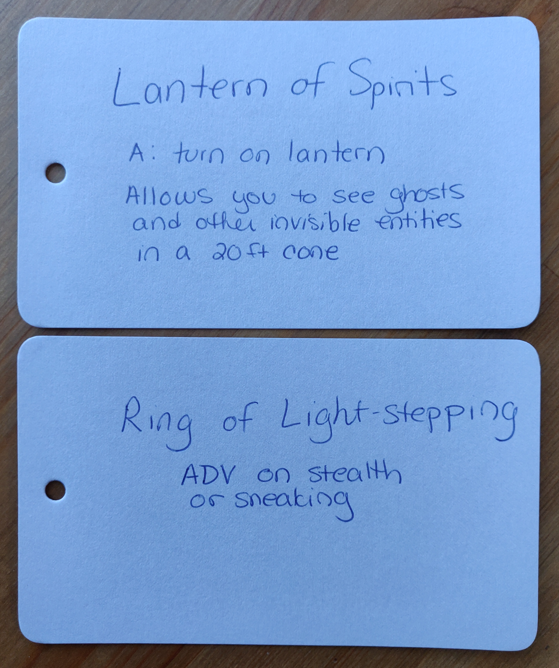 Lantern of Spirits
A: turn on lantern
Allows you to see ghosts
and other invisible entities
in a 20ft cone
Ring of Light-stepping
ADV on stealth
or sneaking